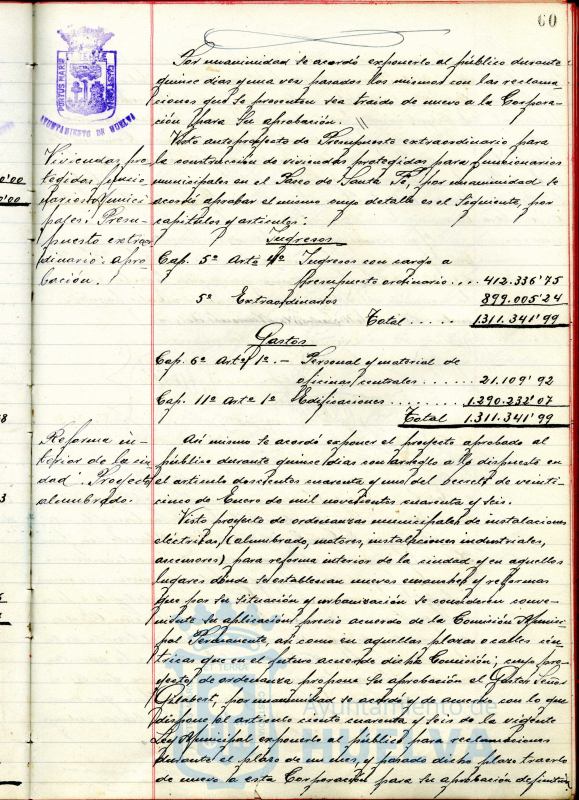 60
Por unanimidad se acordó exponerlo al público durante
quince dias y una vez pasados los mismos con las reclama-
ciones que se presenten sea traido de nuevo a la Corpora-
ción para su aprobación.
VIRTUS MARIS CUSTODIA
AYUNTAMIENTO DE HUELVA
Viviendas pro-
tegidas funcio-
narios munici-
pales. Presu-
puesto extraor-
dinario: apro-
bación.
Visto anteproyecto de Presupuesto extraordinario para
la construcción de viviendas protegidas para funcionarios
municipales en el Paseo de Santa Fe, por unanimidad se
acordó aprobar el mismo cuyo detalle es el siguiente, por
capitulos y articulos:
Ingresos
Cap. 5º Artº 4º Ingresos con cargo a
presupuesto ordinario... 412.336'75
5º Extraordinarios 899.005'24
Total ..... 1.311.341'99
Gastos
Cap. 6º Artº 1º.- Personal y material de
oficinas centrales ...... 21.109'92
Cap. 11º Artº 1º Edificaciones ........ 1.290.232'07
Total 1.311.341'99
Reforma in-
terior de la ciu-
dad. Proyecto
alumbrado.
Asi mismo se acordó exponer el proyecto aprobado al
público durante quince dias con arreglo a lo dispuesto en
el articulo doscientos cuarenta y uno del Decreto de veinti-
cinco de Enero de mil novecientos cuarenta y seis.
Visto proyecto de ordenanzas municipales de instalaciones
eléctricas, (alumbrado, motores, instalaciones industriales,
ascensores) para reforma interior de la ciudad y en aquellos
lugares donde se establezcan nuevos ensanches y reformas
que por su situación y urbanización se consideren conve-
niente su aplicación previo acuerdo de la Comisión Munici-
pal Permanente, asi como en aquellas plazas o calles cén-
tricas que en el futuro acuerde dicha Comisión; cuyo pro-
yecto de ordenanza propone su aprobación el Gestor señor
Gilabert, por unanimidad se acordó y de acuerdo con lo que
dispone el articulo ciento cuarenta y seis de la vigente
Ley Municipal exponerlo al público para reclamaciones
durante el plazo de un mes, y pasado dicho plazo traerlo
de nuevo a esta Corporación para su aprobación definitiva
Ayuntamiento de
HUELVA